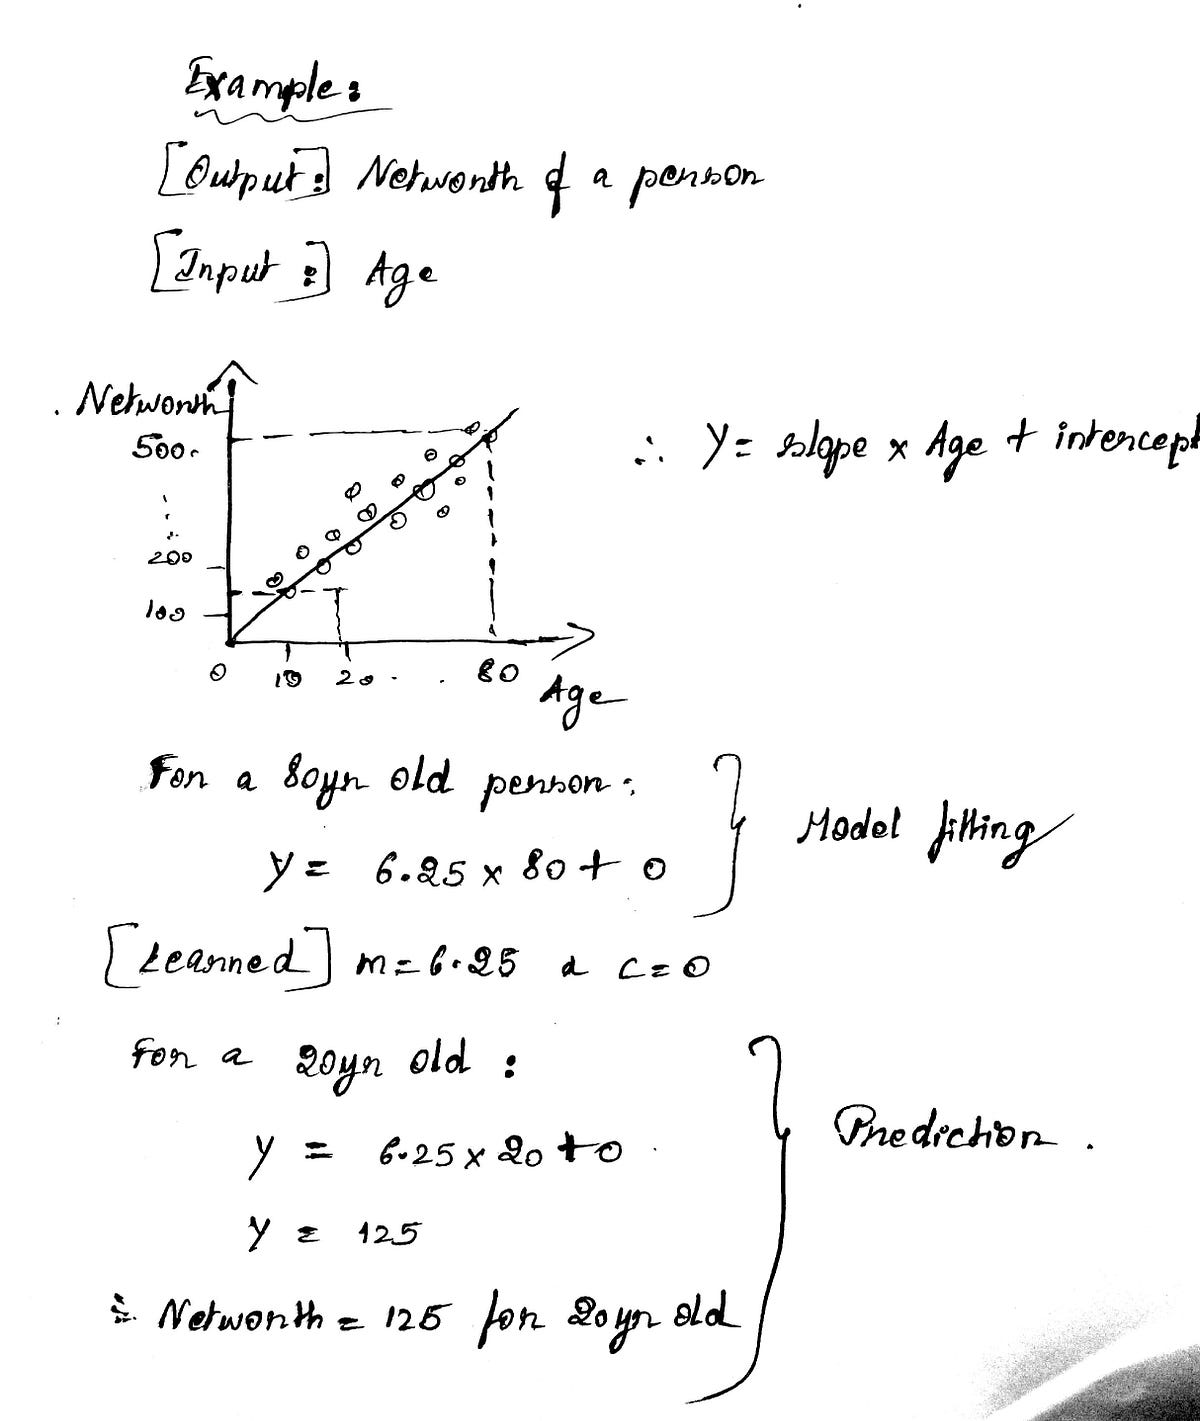 Example:
[Output:] Networth of a person
[Input:] Age
Networth
500
200
100
0 10 20 . . 80
Age
∴ Y = slope x Age + intercept
For a 80yr old person:
y = 6.25 x 80 + 0
Model fitting
[Learned] m = 6.25 & c = 0
For a 20yr old :
y = 6.25 x 20 + 0
y = 125
Prediction.
∴ Networth = 125 for 20yr old